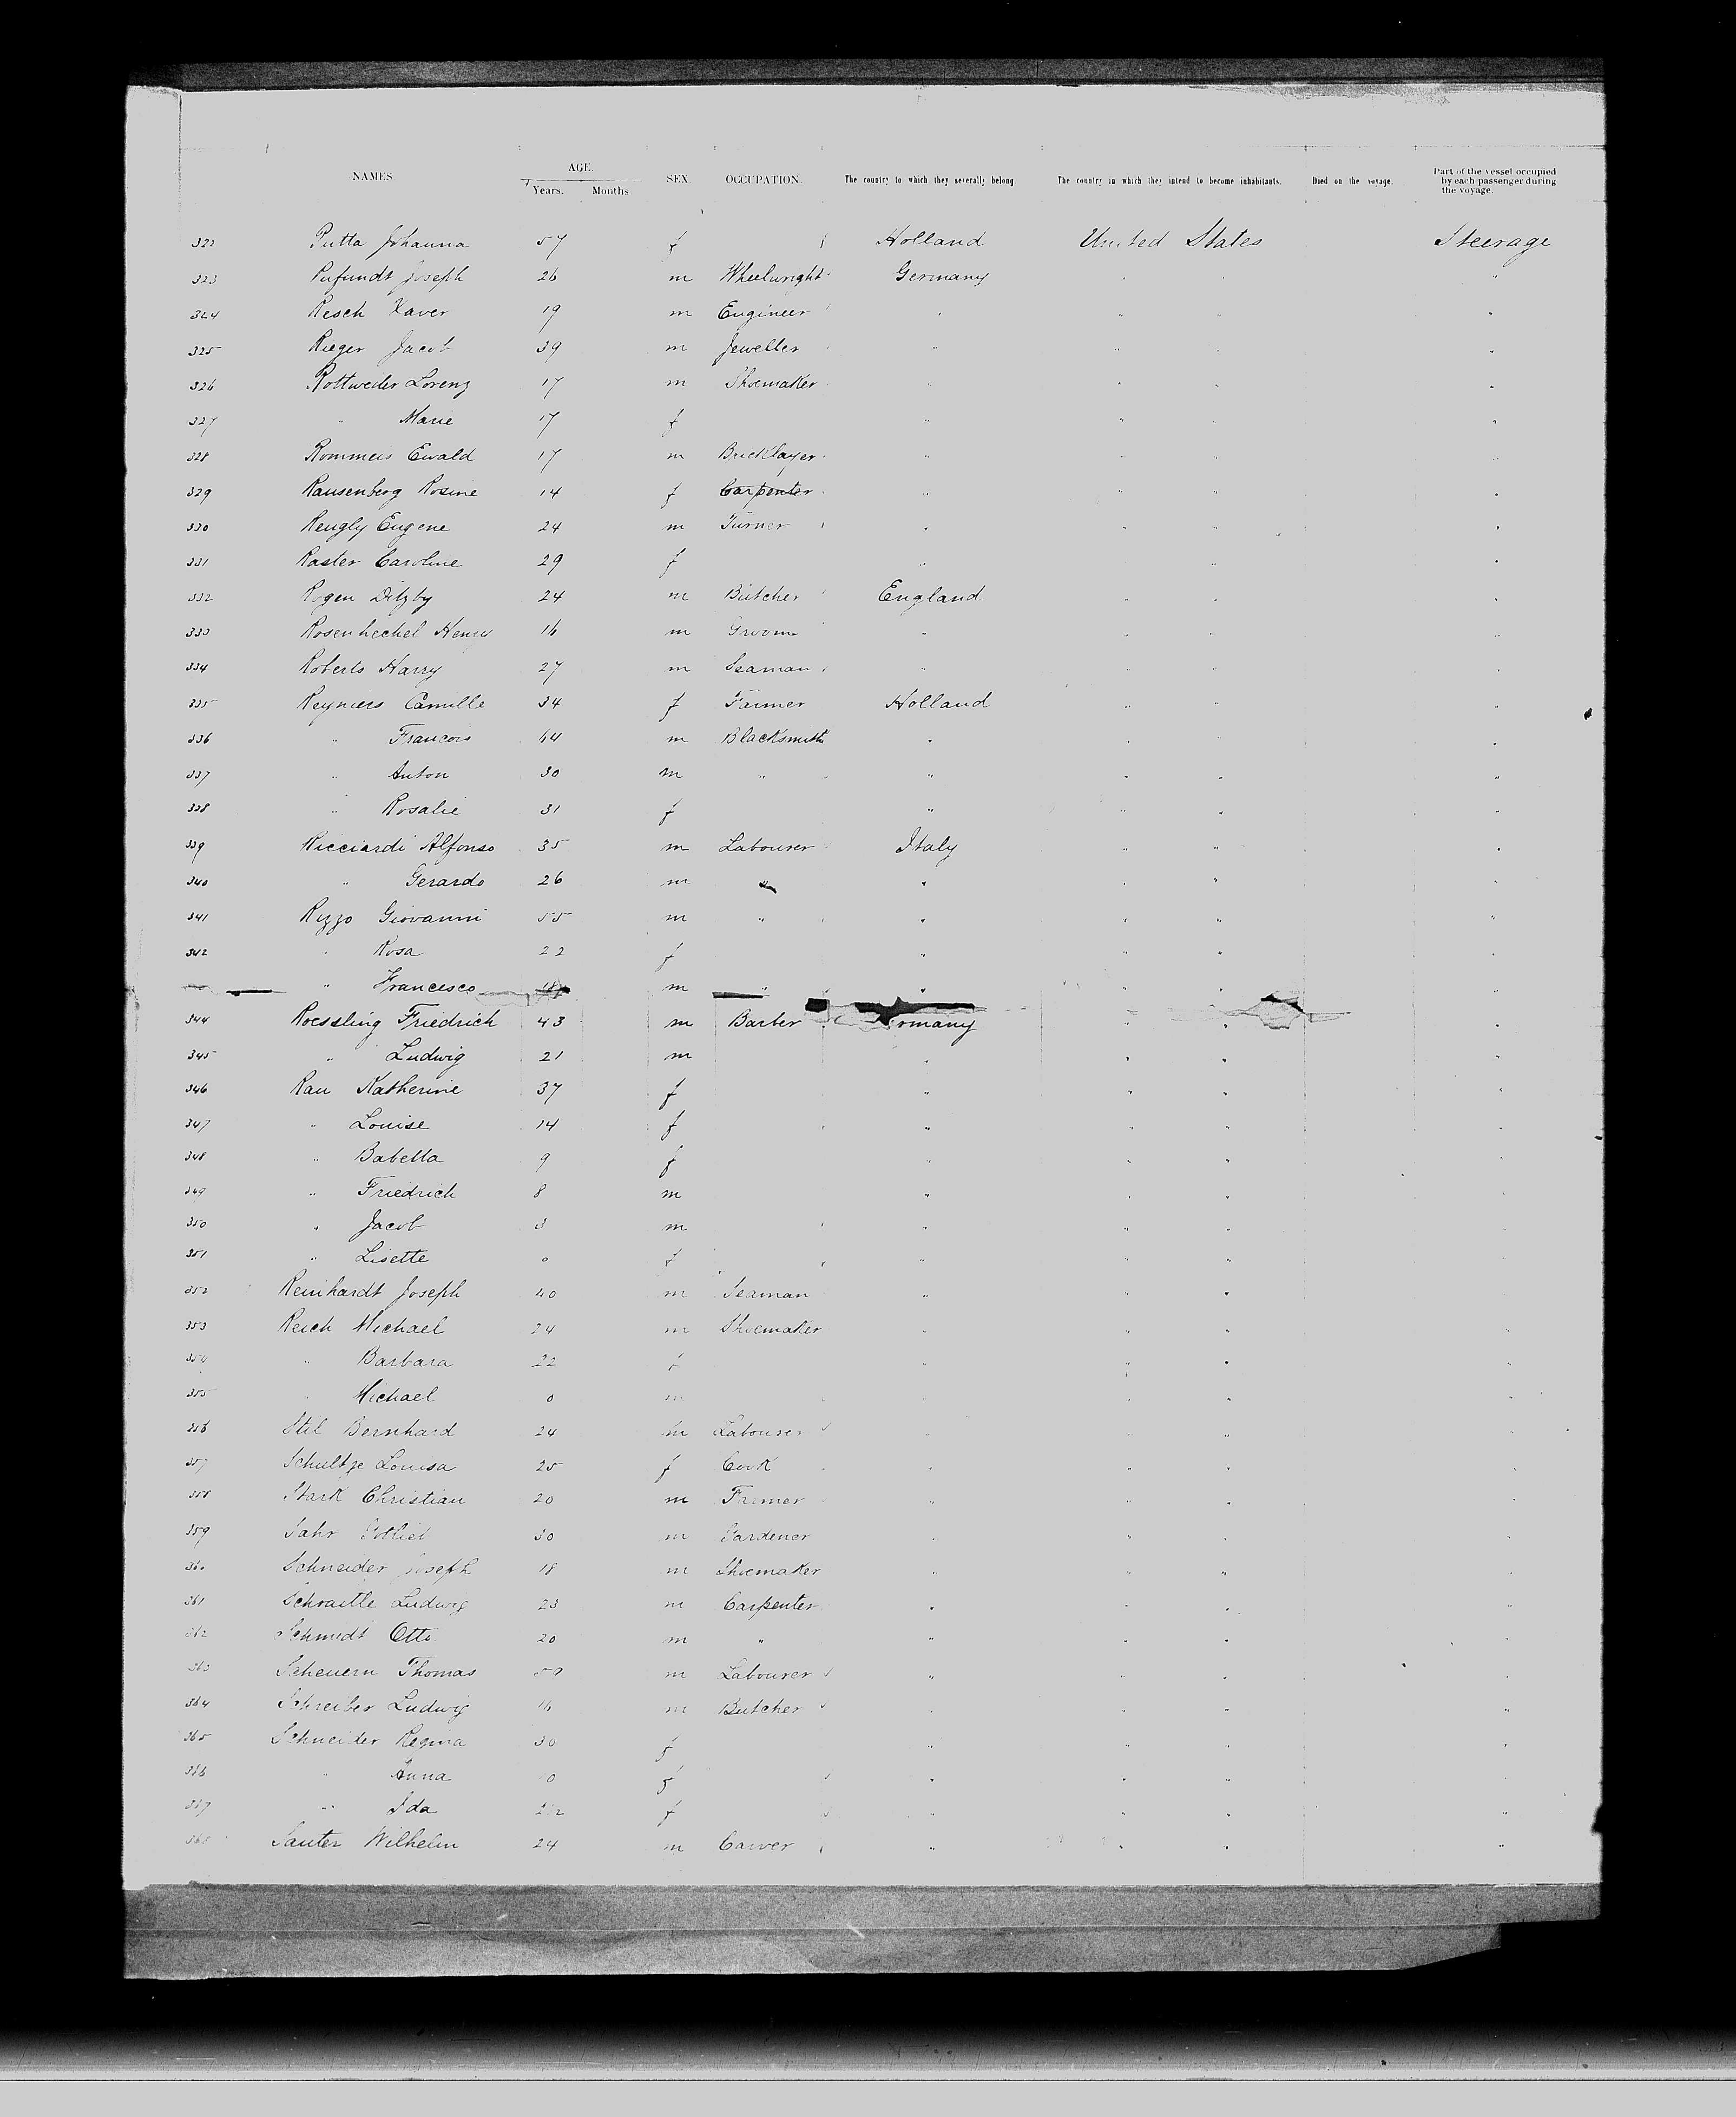 NAMES. AGE. SEX. OCCUPATION. The country to which they severally belong. The country in which they intend to become inhabitants. Died on the voyage. Part of the vessel occupied by each passenger during the voyage.
Years. Months.
322 Putta Johanna 57 f Holland United States Steerage
323 Joseph 26 m Wheelwright Germany " " "
324 Resch Xaver 19 m Engineer " " " "
325 Rieger Jacob 39 m Jeweller " " " "
326 Rottweder Lorenz 17 m Shoemaker " " " "
327 " Marie 17 f " " "
328 Rommeis Ewald 17 m Bricklayer " " " "
329 Rausenberg Rosine 14 f Carpenter " " " "
330 Rengly Eugene 24 m Turner " " " "
331 Raster Caroline 29 f " " "
332 Rogen Ditzby 24 m Butcher England " " "
333 Rosenheckel Henry 16 m Groom " " " "
334 Roberts Harry 27 m Seaman " " " "
335 Reyniers Camille 34 f Farmer Holland " " "
336 " Francois 64 m Blacksmith " " " "
337 " Anton 30 m " " " " "
338 " Rosalie 31 f " " " "
339 Ricciardi Alfonso 35 m Labourer Italy " " "
340 " Gerardo 26 m " " " " "
341 Rizzo Giovanni 55 m " " " " "
342 " Rosa 22 f " " " "
" Francesco m " " " " "
344 Roessling Friedrich 43 m Barber rmany " " "
345 " Ludwig 21 m " " " "
346 Rau Katherine 37 f " " " "
347 " Louise 14 f " " " "
348 " Babetta 9 f " " " "
349 " Friedrich 8 m " " " "
350 " Jacob 3 m " " " "
351 " Lisette 0 f " " " "
352 Reinhardt Joseph 40 m Seaman " " " "
353 Resch Michael 24 m Shoemaker " " " "
354 " Barbara 22 f " " " "
355 " Michael 0 m " " "
356 Stil Bernhard 24 m Labourer " " " "
357 Schultze Louisa 25 f Cook " " " "
358 Stark Christian 20 m Farmer " " " "
359 Sahr Gottlieb 30 m Gardener " " " "
360 Schneider Joseph 18 m Shoemaker " " " "
361 Schraitle Ludwig 23 m Carpenter " " " "
362 Schmidt Otto 20 m " " " " "
363 Scheuern Thomas m Labourer " " " "
364 Schreiber Ludwig 16 m Butcher " " " "
365 Schneider Regina 30 f " " " "
366 " Anna f " " " "
367 " Ida f " " " "
368 Sauter Wilhelm 24 m Carver " " " "